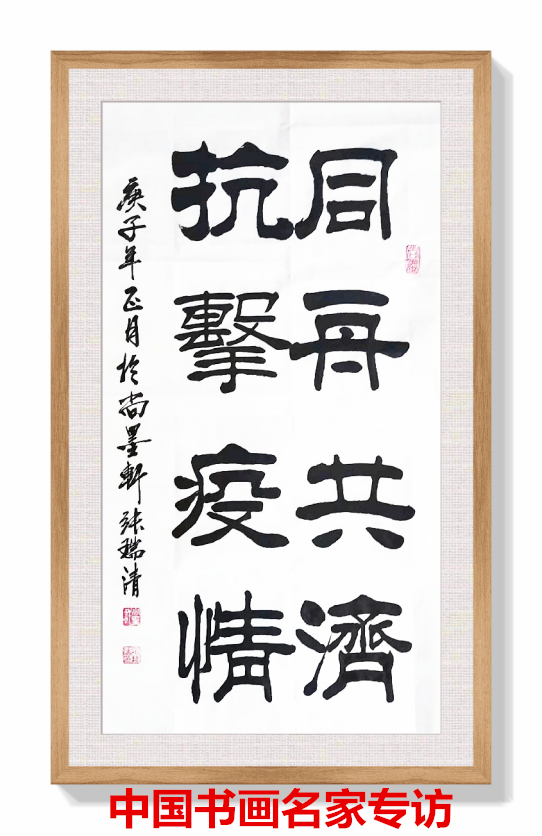 同舟共濟
抗擊疫情
庚子年正月於尚墨軒張瑞清
中国书画名家专访